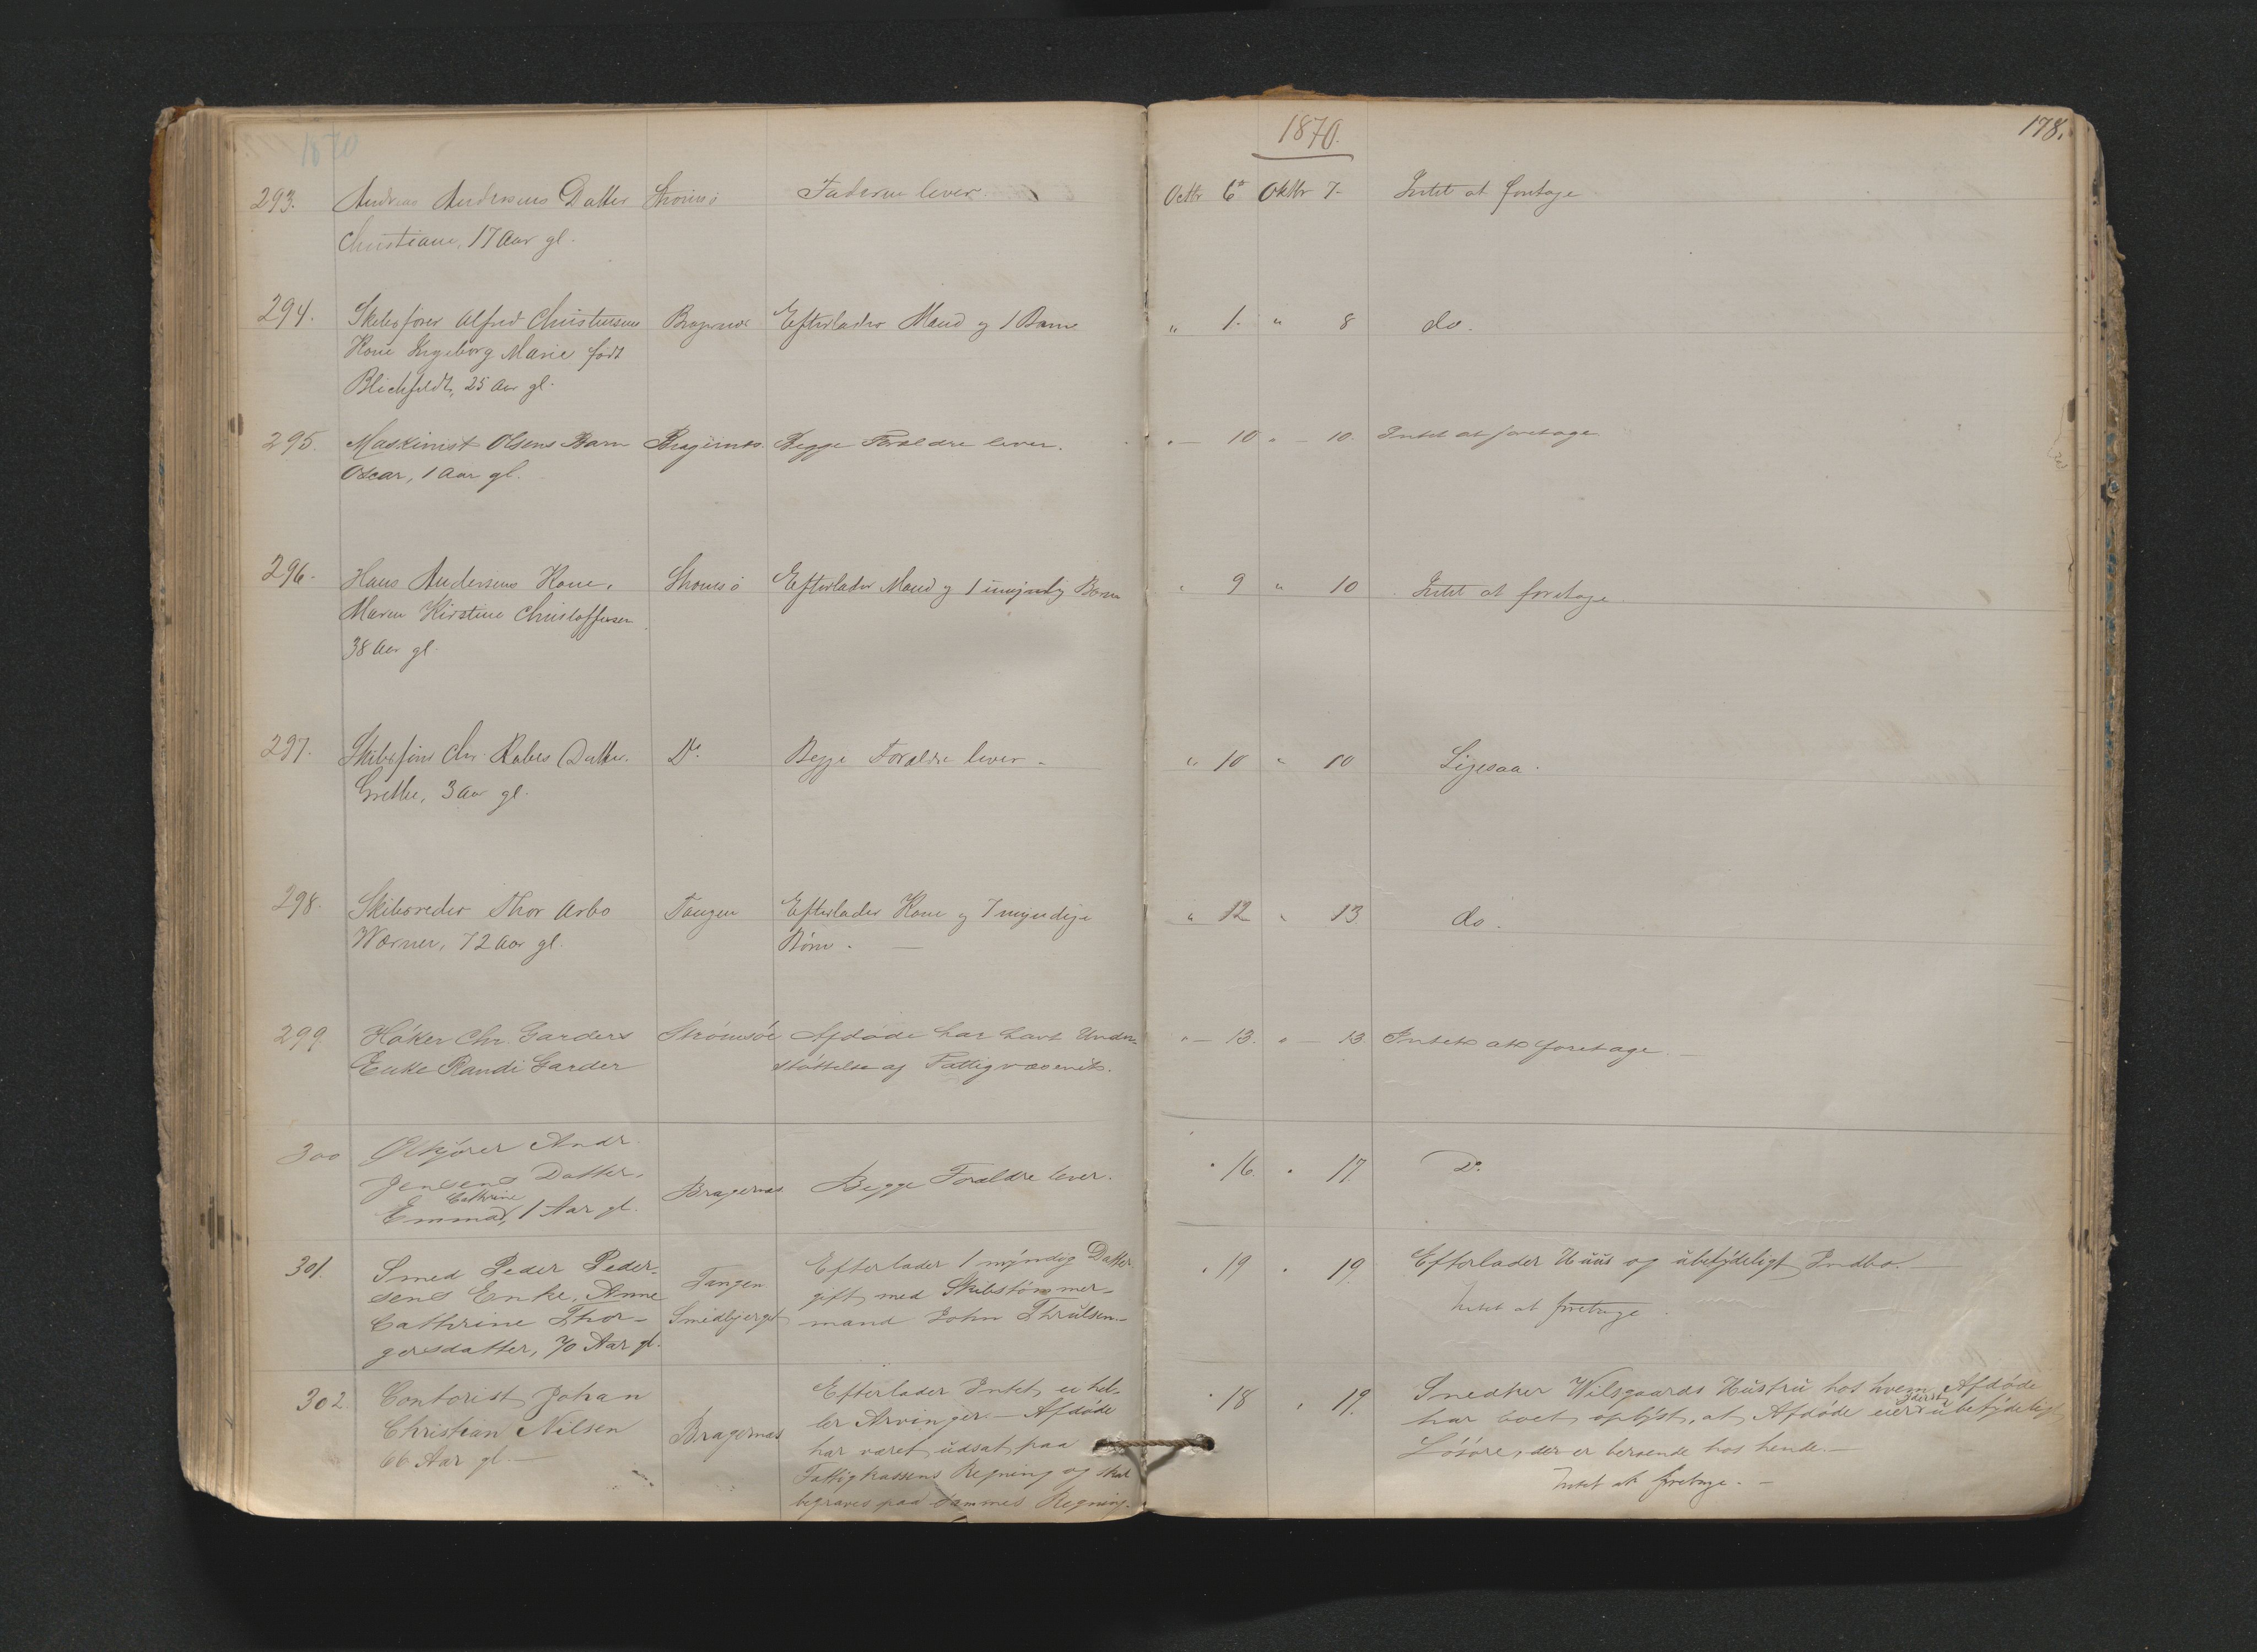 1870.
178.
293. Andreas Andersens Datter Strømsø Faderen lever. Octbr 6te Oktbr 7. Intet at foretage
Christiane, 17 Aar gl.
294. Skibsfører Alfred Christensens Bragernæs Efterlader Mand og 1 Barn " 1. " 8 do.
Kone Ingeborg Marie født
Blichfeldt, 25 Aar gl.
295. Maskinist Olsens Barn Bragernæs. Begge Forældre lever. " 10 " 10. Intet at foretage
Oscar, 1 Aar gl.
296. Hans Andersens Kone, Strømsø Efterlader Mand og 1 umyndig Barn " 9 " 10 Intet at foretage.
Maren Kirstine Christoffersen
38 Aar gl.
297. Skibsfører Chr. Rabes Datter Do Begge Forældre lever. " 10 " 10 Ligesaa.
Grethe, 3 Aar gl.
298. Skibsreder Thor Arbo Tangen Efterlader Kone og 7 myndige " 12 " 13 do.
Wærner, 72 Aar gl. Børn. —
299 Høker Chr. Garders Strømsøe Afdøde har havt Under- " 13. " 13. Intet at foretage. —
Enke Randi Garder støttelse af Fattigvæsenet.
300 Ølkjører Andr.
Jensens Datter, Bragernæs Begge Forældre lever. " 16. " 17. Do.
Cathrine
Emma, 1 Aar gl.
301. Smed Peder Peder- Tangen Efterlader 1 myndig Datter, " 19 " 19. Efterlader Huus og ubetydeligt Indbo. —
sens Enke, Anne Smedbjerget gift med Skibstømmer- Intet at foretage.
Cathrine Thor- mand John Thrulsen. —
gersdatter, 70 Aar gl.
302. Contorist Johan Bragernæs Efterlader Intet, ei hel- " 18 " 19. Snedker Wilsgaards Hustru hos hvem Afdøde
Christian Nilsen ler Arvinger. — Afdøde har boet, oplyst, at Afdøde eier yderst ubetydeligt
66 Aar gl. — har været udsat paa Løsøre, der er beroende hos hende. —
Fattigkassens Regning og skal Intet at foretage. —
begraves paa sammes Regning. —